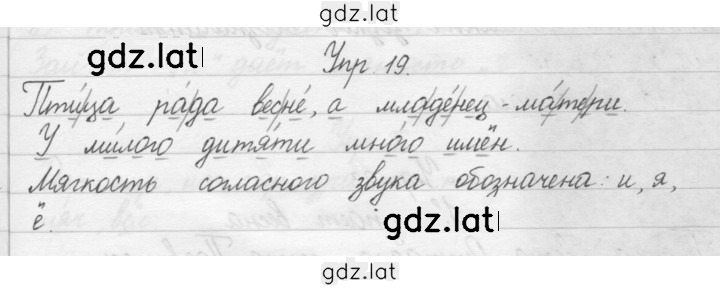 gdz.lat
gdz.lat
Упр. 19.
Птица рада весне, а младенец - матери.
У милого дитяти много имён.
Мягкость согласного звука обозначена: и, я,
ё.
gdz.lat
gdz.lat